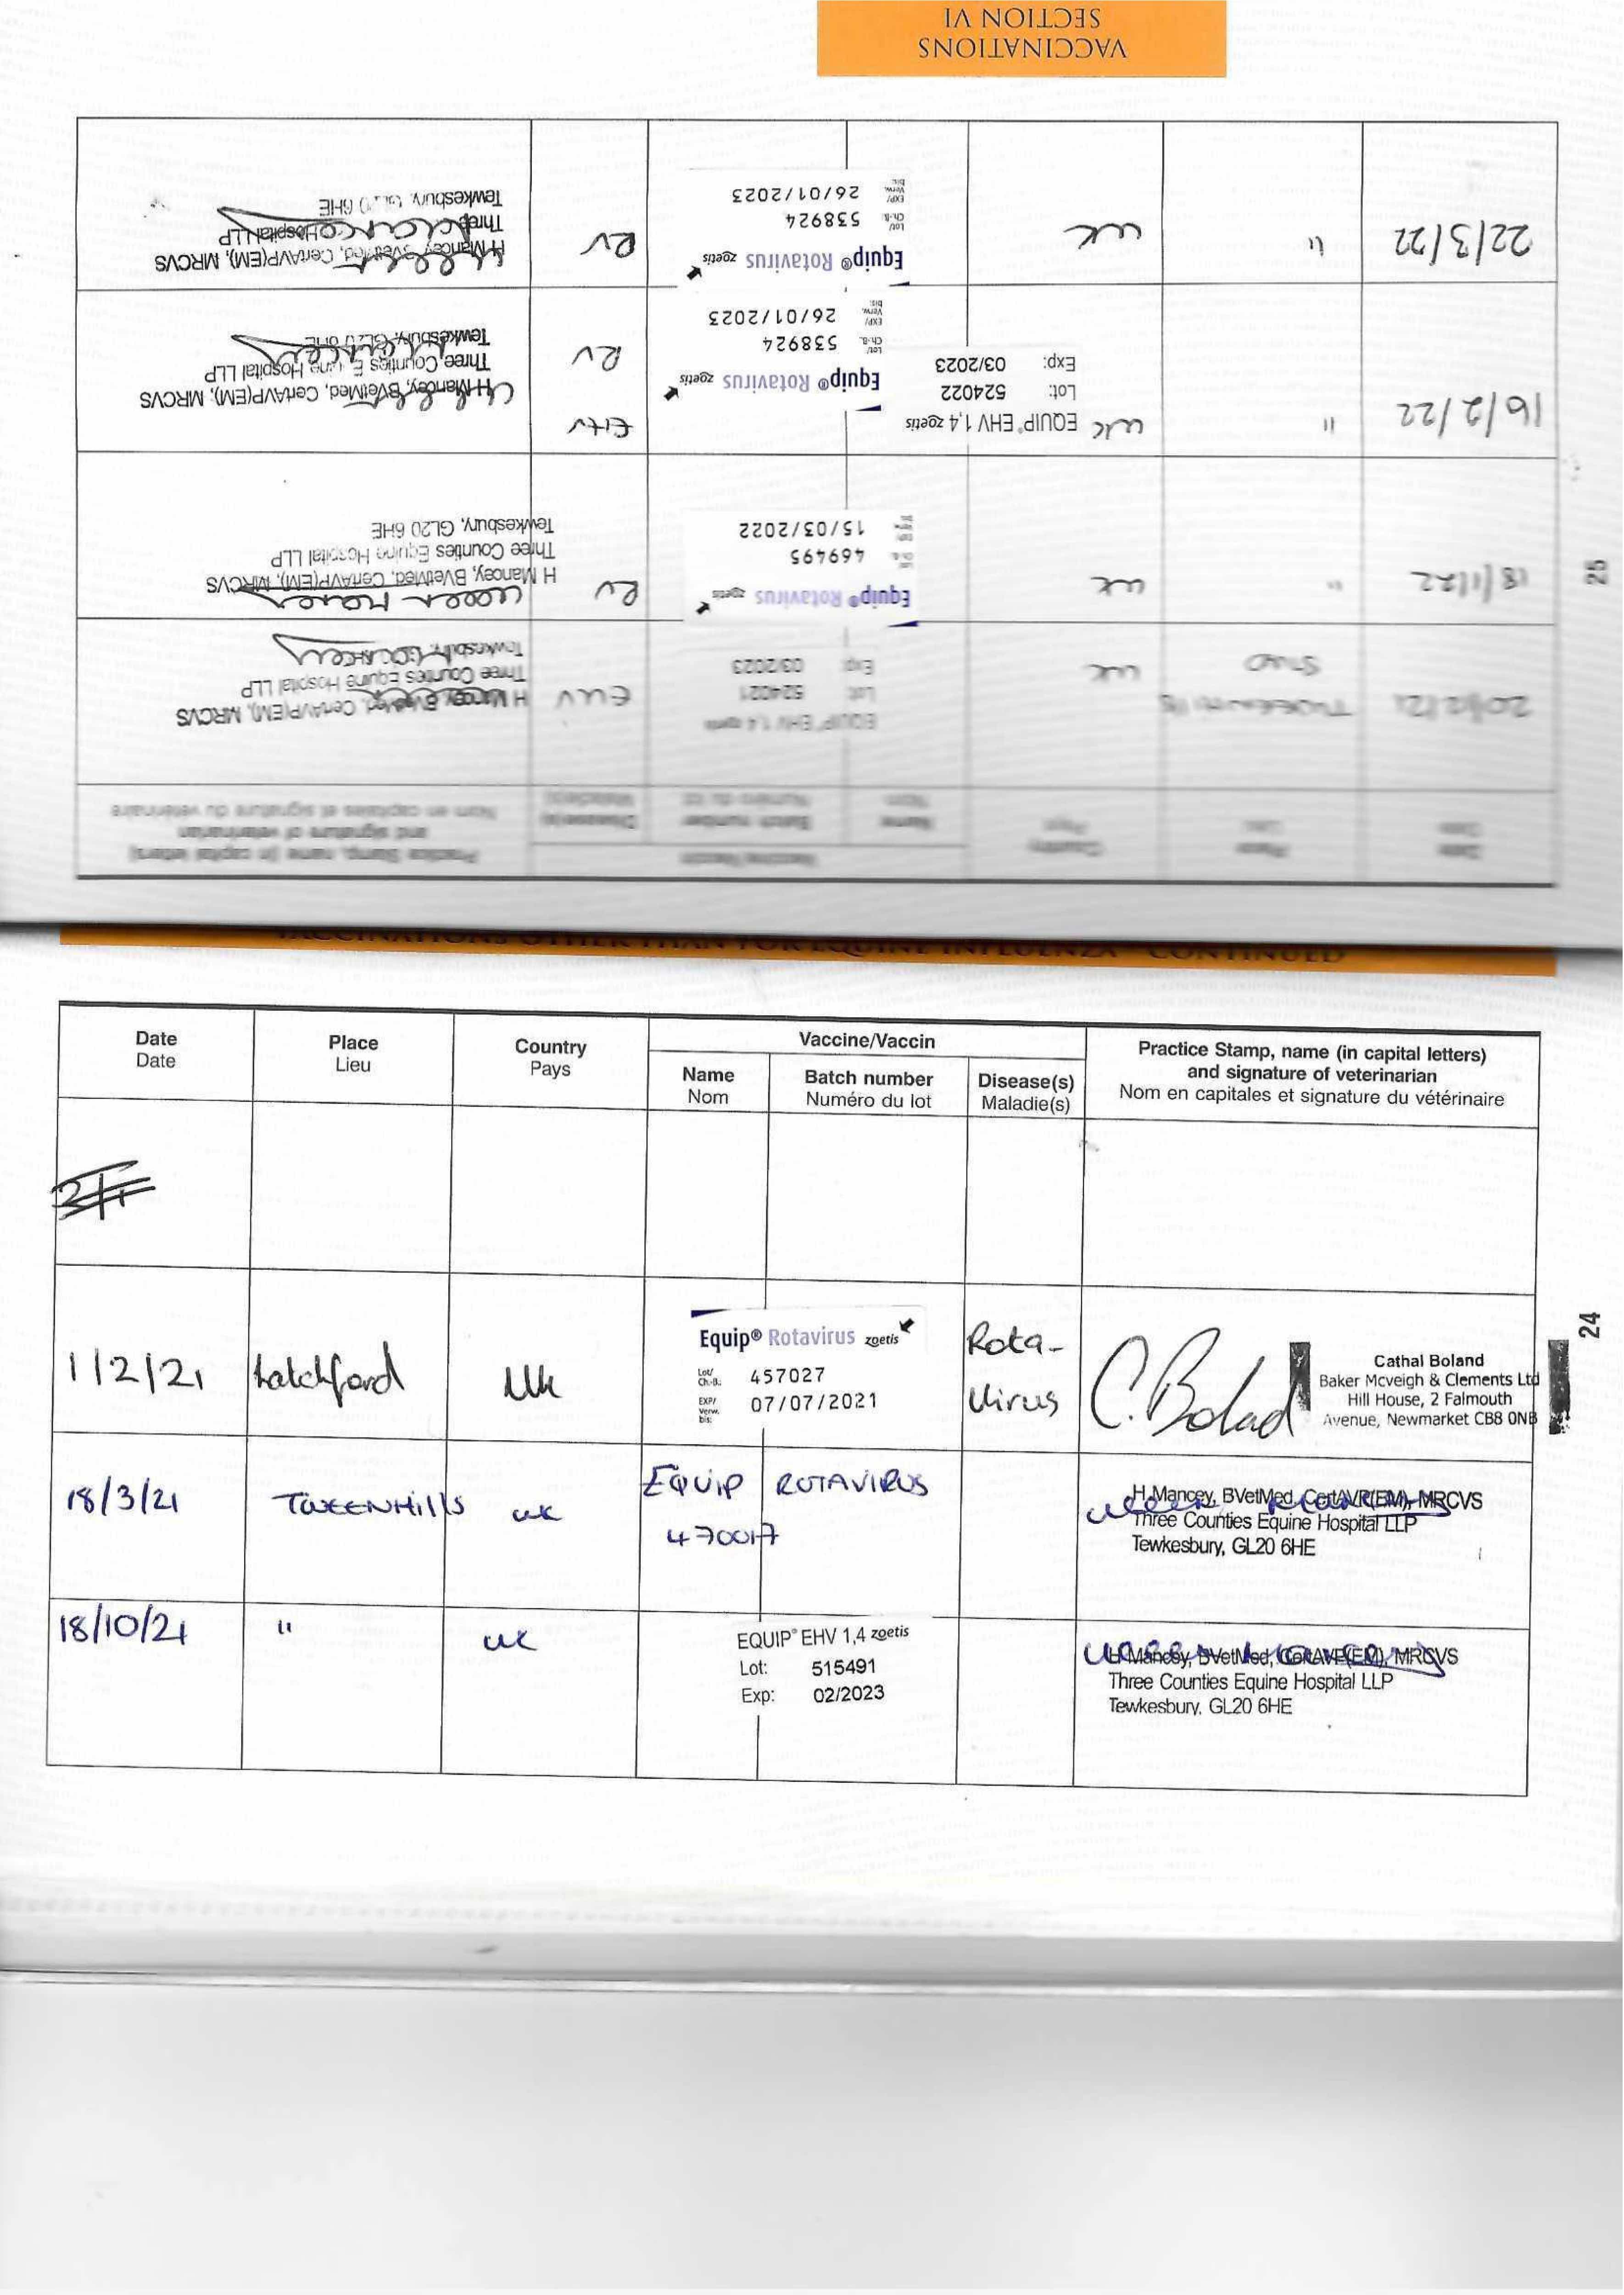 VACCINATIONS OTHER THAN FOR EQUINE INFLUENZA - CONTINUED
Date
Date
Place
Lieu
Country
Pays
Vaccine/Vaccin
Name
Nom
Batch number
Numéro du lot
Disease(s)
Maladie(s)
Practice Stamp, name (in capital letters)
and signature of veterinarian
Nom en capitales et signature du vétérinaire
1/2/21
Hatchford
UK
Equip® Rotavirus zoetis
Lot/ Ch.-B.: 457027
EXP/ Verw. bis: 07/07/2021
Rota-
Virus
C. Boland
Cathal Boland
Baker Mcveigh & Clements Ltd
Hill House, 2 Falmouth
Avenue, Newmarket CB8 0NB
18/3/21
TWEENHills
UK
EQUIP ROTAVIRUS
470017
H Mancey, BVetMed, CertAVP(EM), MRCVS
Three Counties Equine Hospital LLP
Tewkesbury, GL20 6HE
18/10/21
"
UK
EQUIP® EHV 1,4 zoetis
Lot: 515491
Exp: 02/2023
H Mancey, BVetMed, CertAVP(EM), MRCVS
Three Counties Equine Hospital LLP
Tewkesbury, GL20 6HE
24
Date
Date
Place
Lieu
Country
Pays
Vaccine/Vaccin
Name
Nom
Batch number
Numéro du lot
Disease(s)
Maladie(s)
Practice Stamp, name (in capital letters)
and signature of veterinarian
Nom en capitales et signature du vétérinaire
20/12/21
TWEENHills
STUD
UK
EQUIP® EHV 1,4 zoetis
Lot: 524021
Exp: 03/2023
EHV
H Mancey, BVetMed, CertAVP(EM), MRCVS
Three Counties Equine Hospital LLP
Tewkesbury,
18/1/22
"
UK
Equip® Rotavirus zoetis
469495
15/03/2022
RV
H Mancey, BVetMed, CertAVP(EM), MRCVS
Three Counties Equine Hospital LLP
Tewkesbury, GL20 6HE
16/2/22
"
UK
EQUIP® EHV 1,4 zoetis
Lot: 524022
Exp: 03/2023
Equip® Rotavirus zoetis
Lot/ Ch.-B.: 538924
EXP/ Verw. bis: 26/01/2023
EHV
RV
H Mancey, BVetMed, CertAVP(EM), MRCVS
Three Counties Equine Hospital LLP
Tewkesbury, GL20 6HE
22/3/22
"
UK
Equip® Rotavirus zoetis
Lot/ Ch.-B.: 538924
EXP/ Verw. bis: 26/01/2023
RV
H Mancey, BVetMed, CertAVP(EM), MRCVS
Three Hospital LLP
Tewkesbury, GL20 6HE
25
VACCINATIONS
SECTION VI